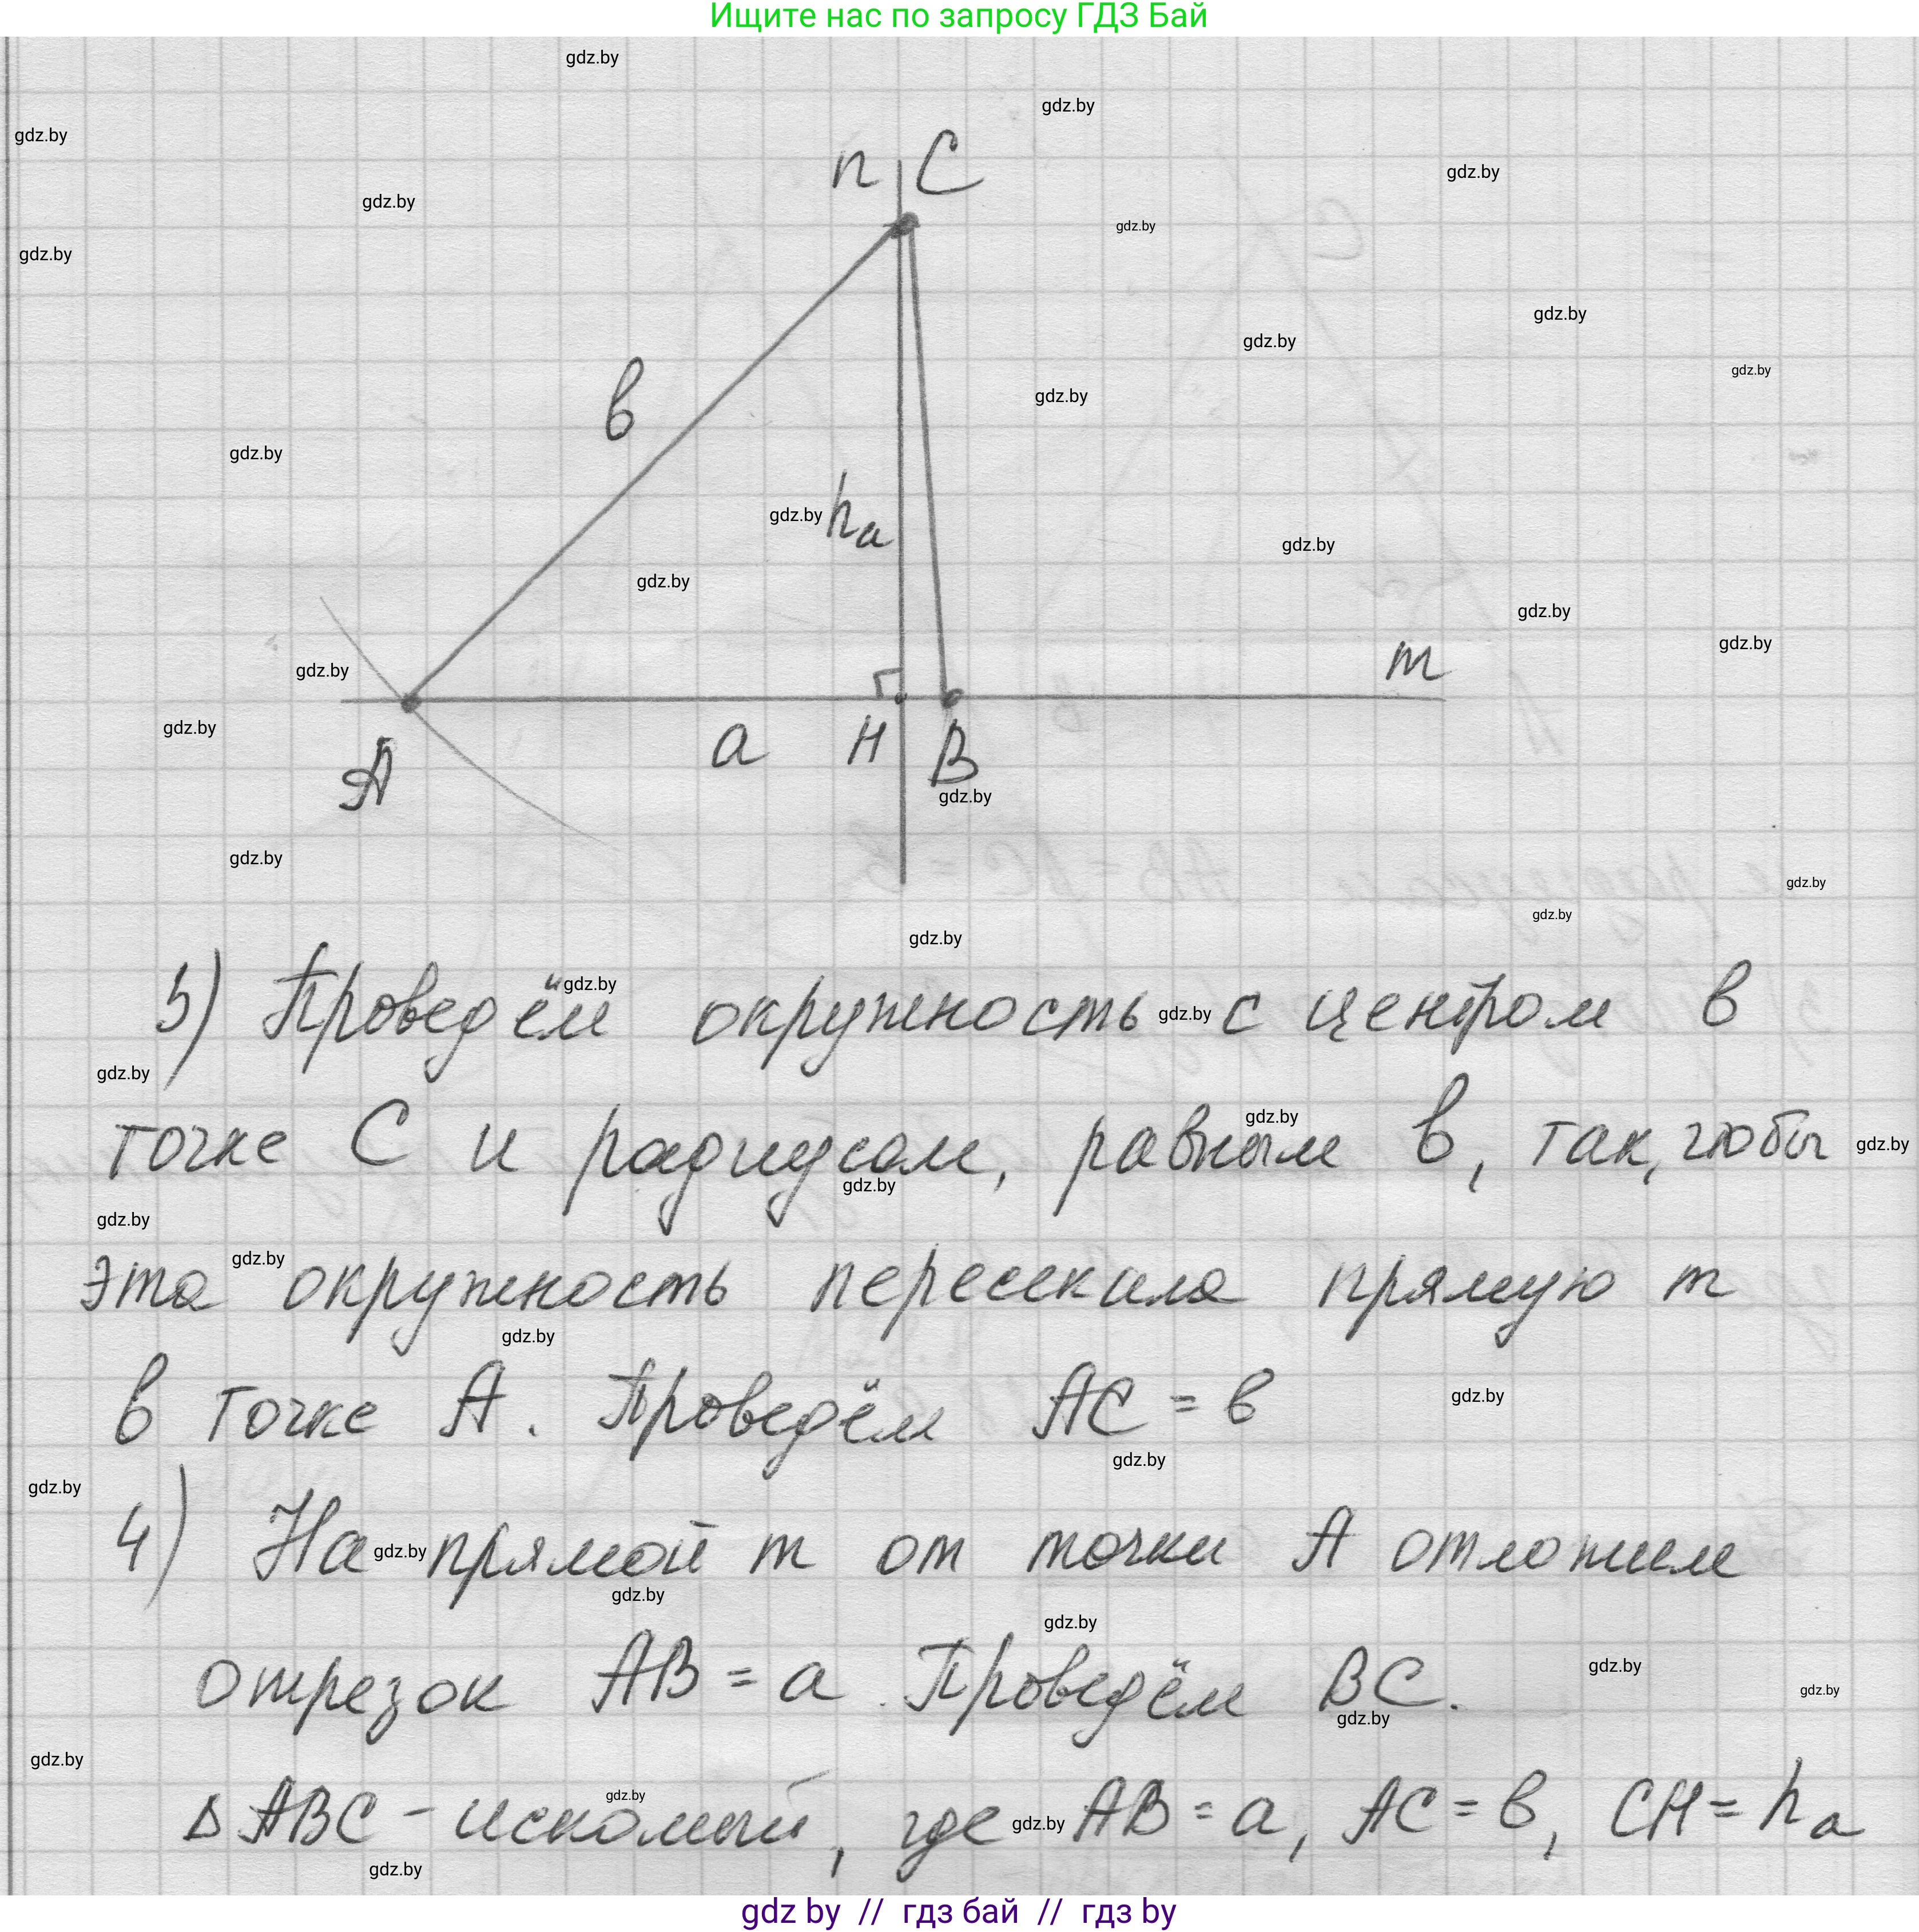 Ищите нас по запросу ГДЗ Бай
n C
в
hа
m
a H B
A
3) Проведём окружность с центром в
точке C и радиусом, равным в, так, чтобы
эта окружность пересекала прямую m
в точке A. Проведём AC = в
4) На прямой m от точки A отложим
отрезок AB = a. Проведём BC.
Δ ABC - искомый, где AB = a, AC = в, CH = hа
gdz by // гдз бай // гдз by